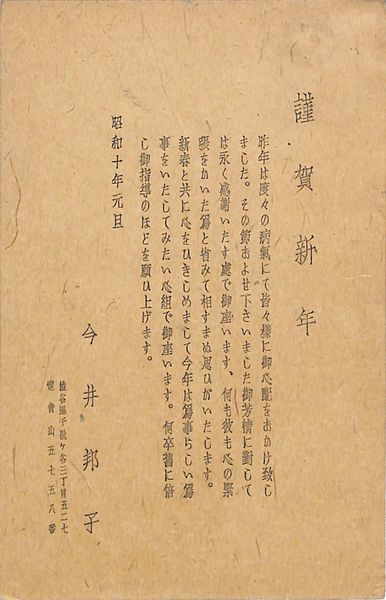 謹賀新年
昨年は度々の病氣にて皆々様に御心配をおかけ致し
ました。その節およせ下さいました御芳情に對して
は永く感謝いたす處で御座います、何も彼も心の緊
張をかいた爲と省みて相すまぬ思ひがいたします。
新春と共に心をひきしめまして今年は爲事らしい爲
事をいたしてみたい心組で御座います。何卒舊に倍
し御指導のほどを願ひ上げます。
昭和十年元旦
今井邦子
澁谷區千駄ヶ谷三丁目五二七
電青山五七五八番